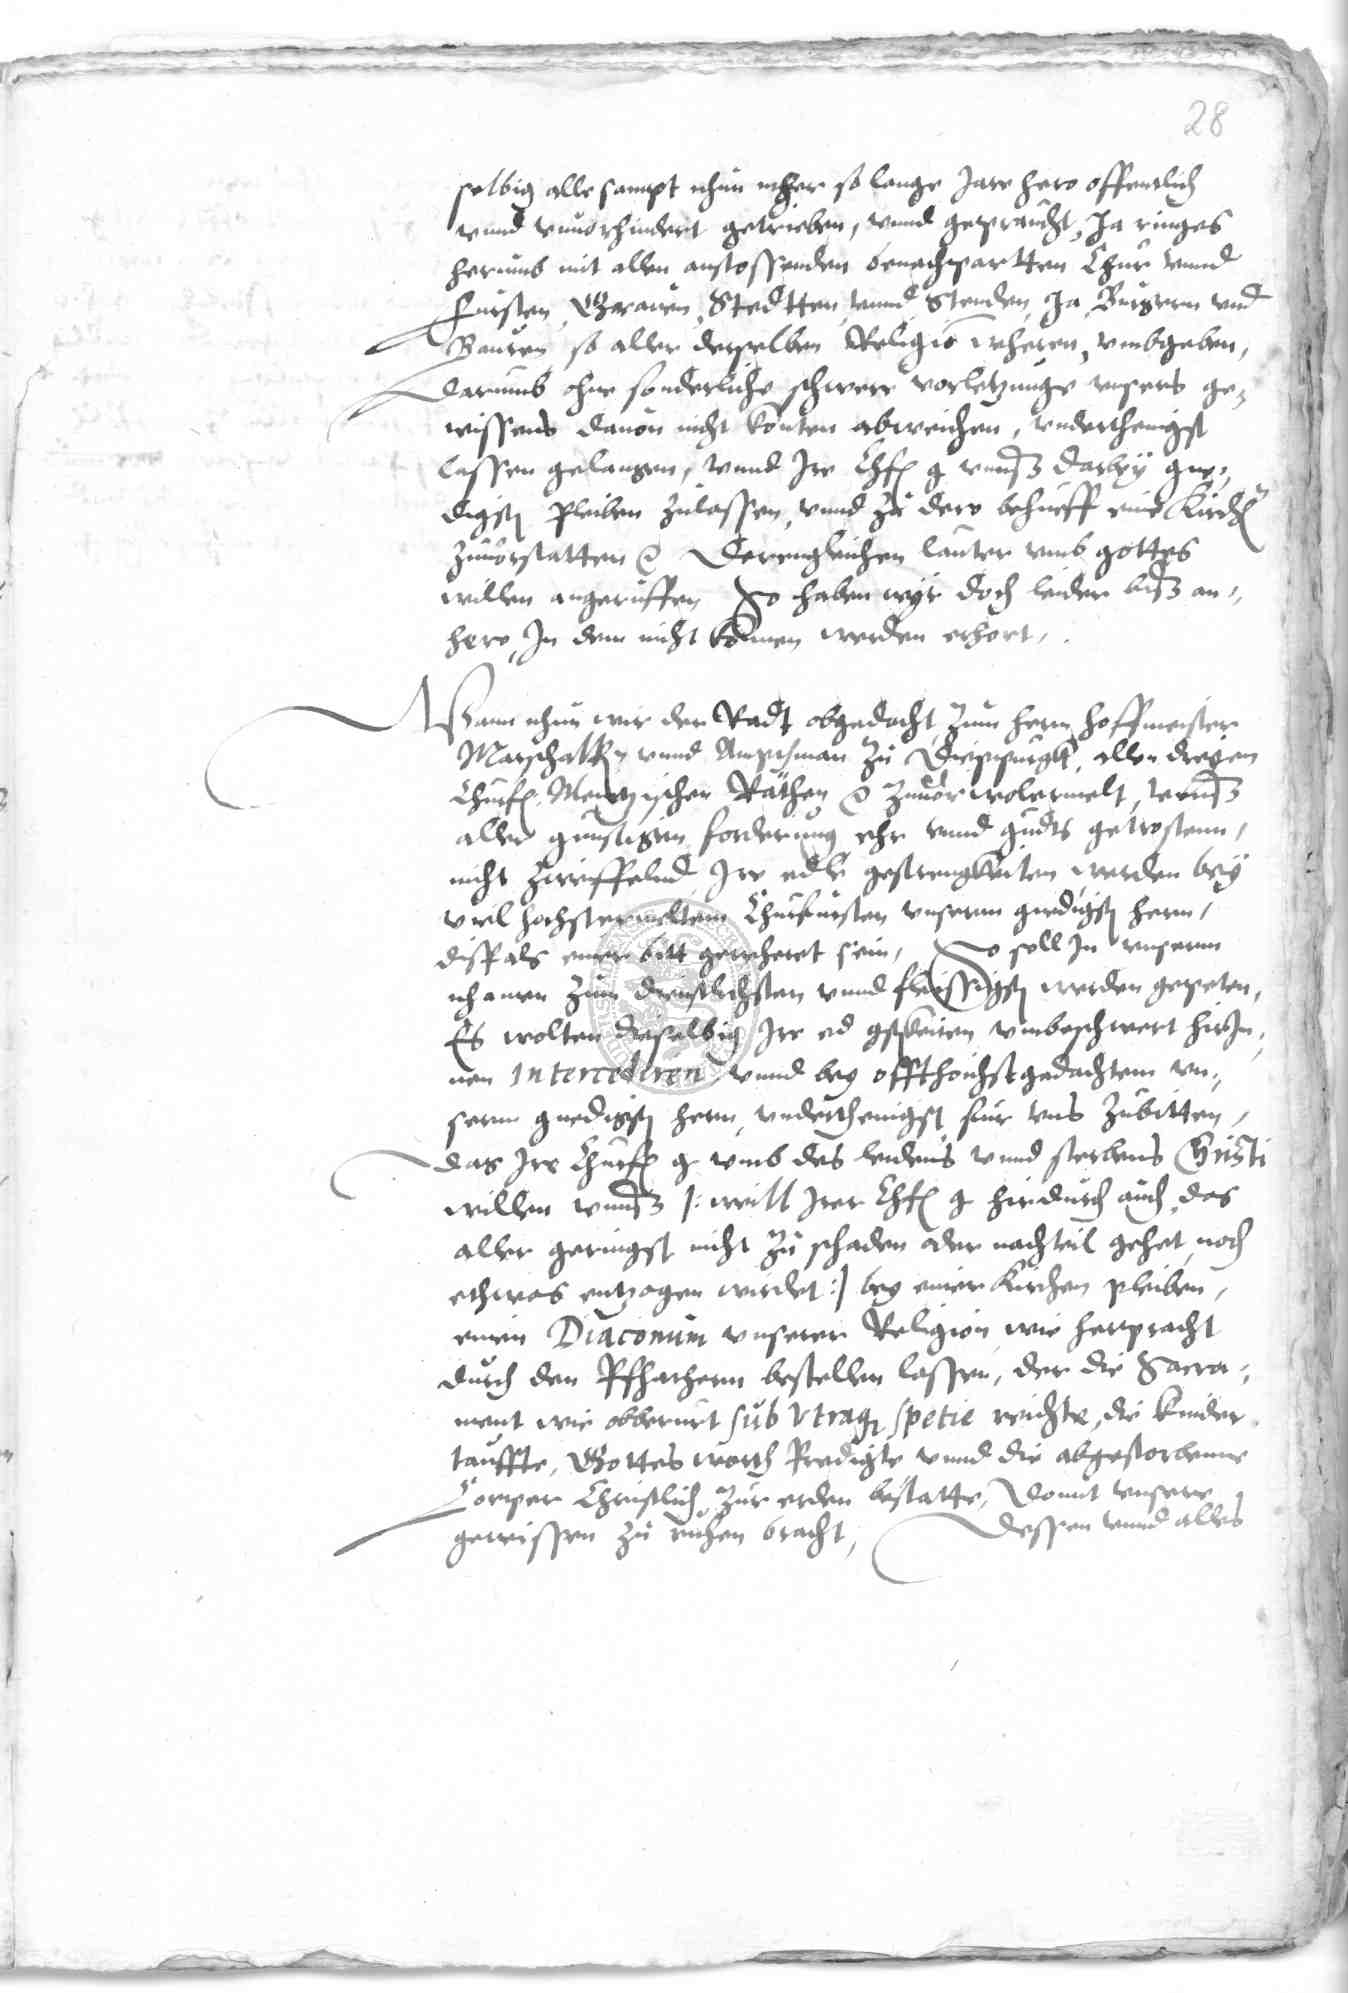 28
selbig alle sampt nhun mher so lange Jare hero offentlich
vnnd vnuorhindert getrieben, vnnd gepraucht, Ja ringes
herumb mit allen anstossenden benachpartten Chur vnnd
Fursten, Grauen, Stedtten, vnnd Stenden, Ja Burgern vnd
Bauren so aller derselben Religio wheren, vmbgeben,
Darumb ohne sonderliche schwere vorletzunge vnsers ge,,
wissens dauon nicht konten abweichen, vnderthenigst
lassen gelangen, vnnd Ire Chf g vnnß darbey gne,,
digst pleiben zulassen, vnnd zu dero behueff eine Kirch
zuuorstatten Derengleichen lauter vmb gottes
willen angeruffen So haben wyr doch leider biß an,,
hero, In dem nicht konnen werden erhort,
Wann nhun wir der Radt obgedacht, zum hern hoffmeister
Marschalkn vnnd Amptman zu, allen dreyen
Churf. Mentzischen Räthen zuuor wolermelt, vnnß
aller gunstigen forderung ehr vnnd gudts getrostenn,
nicht zweiffelnd Ire edle gestrengkeiten werden bey
viel hochstermeltem Churfursten vnserm gnedigst hern,
dißfals einer bitt geweheret sein, So soll In vnserm
nhamen zum dienstlichsten vnnd fleissigst werden gepeten,
Es wolten dieselbig Ire ed gstkeiten vnbeschwert hirIn,,
nen intercediren vnnd bey offthöichstgedachtem vn,,
serm gnedigst hern, vnderthenigst fuir vns zubitten,
Das Ire Churf g vmb des leidens vnnd sterbens Christi
willen vnnß |: weill Irer Chf g hirdurch auch das
aller geringst nicht zu schaden oder nachteil gehet, noch
ethwas entzogen wirdet :| bey einer Kirchen pleiben,
einen Diaconum vnserer Religion, wie herpracht
durch den Pfharhern bestellen lassen, der die Sacra,,
ment wie obberurt sub vtraq spetie reichte, die kinder
tauffte, Gottes worth Predigte vnnd die abgestorbenne
Corper Christlich zur erden bestatte, Domit vnsere
gewissen zu ruhen bracht, Dessen vnnd alles